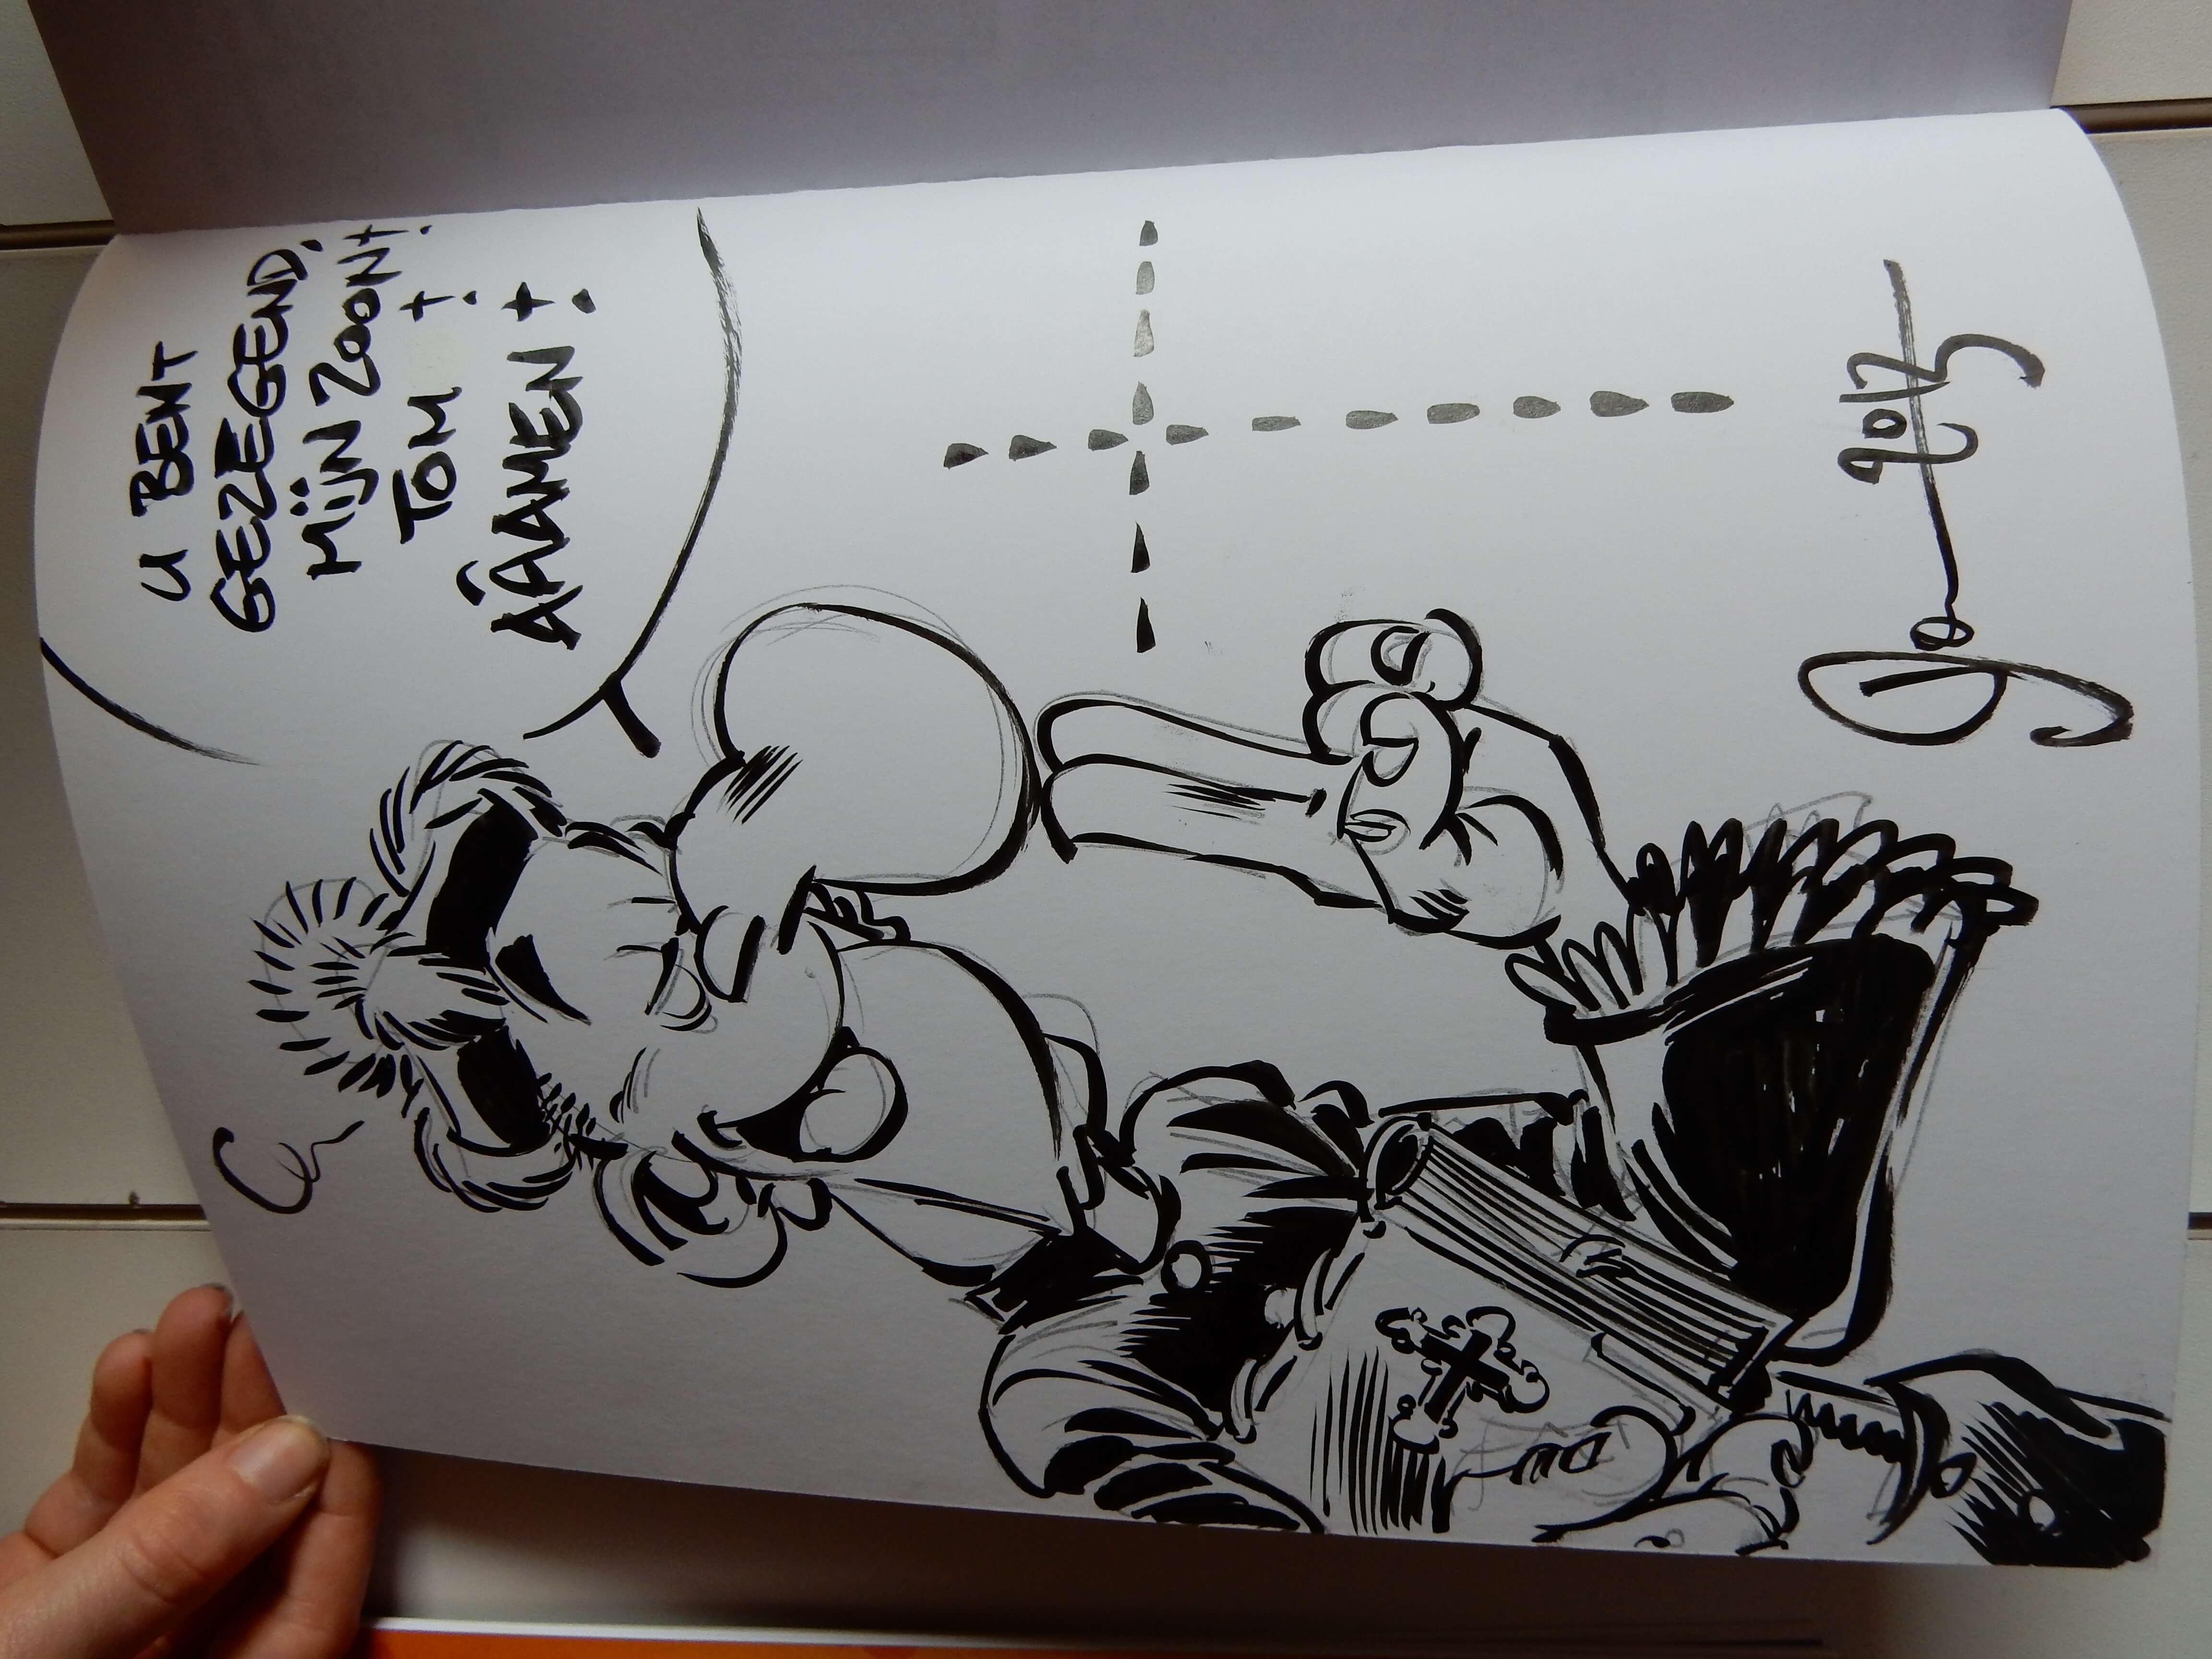 U BENT
GEZEGEND,
MIJN ZOON!
TOM !
AÂAMEN !
2013